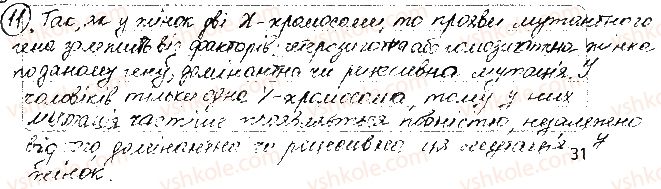 11. Так, як у жінок дві X-хромосоми, то прояви мутантного
гена залежить від факторів: гетерозиготна або гомозиготна жінка
по даному гену, домінантна чи рецисивна мутація. У
чоловіків тільки одна Y-хромосома, тому у них
мутація частіше проявляться повністю, незалежно
від домінантна чи рецисивна ця мутація. У
жінок.
31